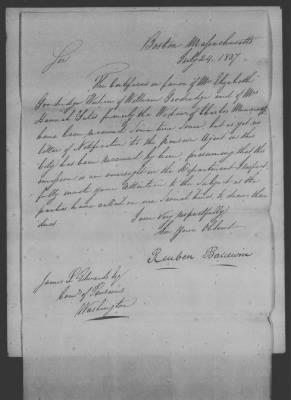 Boston Massachusetts
July 24. 1837.
Sir
The Certificates in favor of Mrs Elizabeth
Goodridge Widow of William Goodridge and of Mrs
Hannah formerly the Widow of Charles
have been received some time since, but as yet no
letter of Notification to the pension Agent in this
City has been received by him, presuming that the
is an oversight in the Department I respect
fully your attention to the Subject as the
parties have called on me several times, to draw their
dues
I am Very respectfully
Sir Your Obdnt
Reuben Baldwin
James L Edwards Esq
Comr of Pensions
Washington